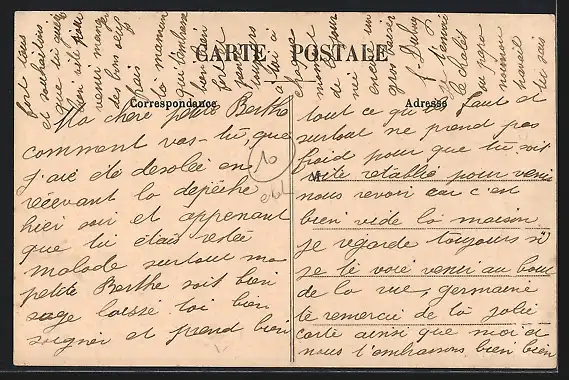 CARTE POSTALE
Correspondance
Adresse
Ma chère petite Berthe
comment vas-tu, que
j'ai été desolée en
recevant la depêche
hier soir et apprenant
que tu étais restée
malade surtout ma
petite Berthe soit bien
sage laisse toi bien
soigner et prend bien
tout ce qu'il faut et
surtout ne prend pas
froid pour que tu soit
M
vite retablie pour venir
nous revoir car c'est
bien vide la maison
je regarde toujours si
je te voie venir au bout
de la rue, germaine
te remercie de la jolie
carte ainsi que moi et
nous t'embrassons bien bien
fort tous
et souhaitons
que tu guérisse
bien vite pour
venir manger
des bons oeufs
frais
ta maman
qui t'embrasse
bien bien
fort et
pense
toujours
à toi à
chaque
minute
de
encore un
gros baiser
le chalet
du papa
maman
travail